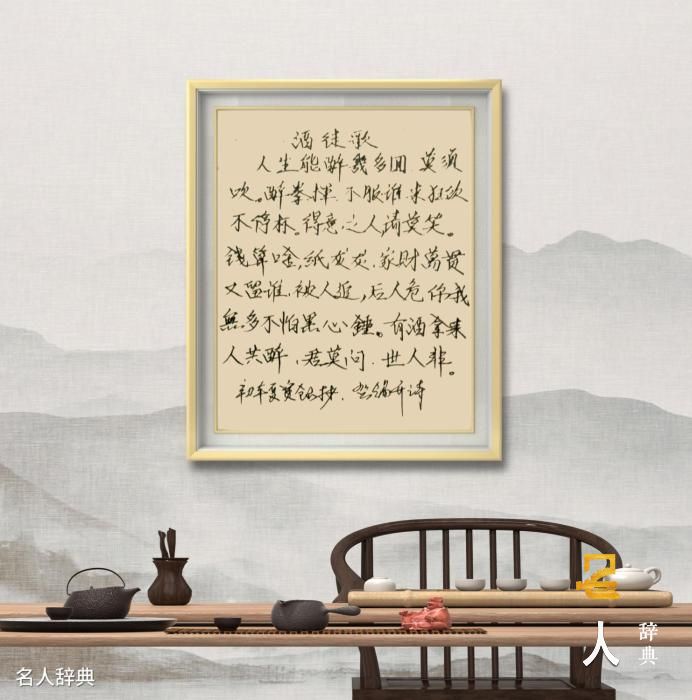 酒徒歌
人生能醉幾多回 莫须
吹。醉拳挥 不服谁 来狂饮
不停杯。得意之人请莫笑。
钱算啥,纸灰灰.家财萬贯
又留谁.被人追,后人危 你我
無多不怕黑心錘。有酒拿来
人共醉,君莫问.世人非。
诗
名
人
辞典
名人辞典